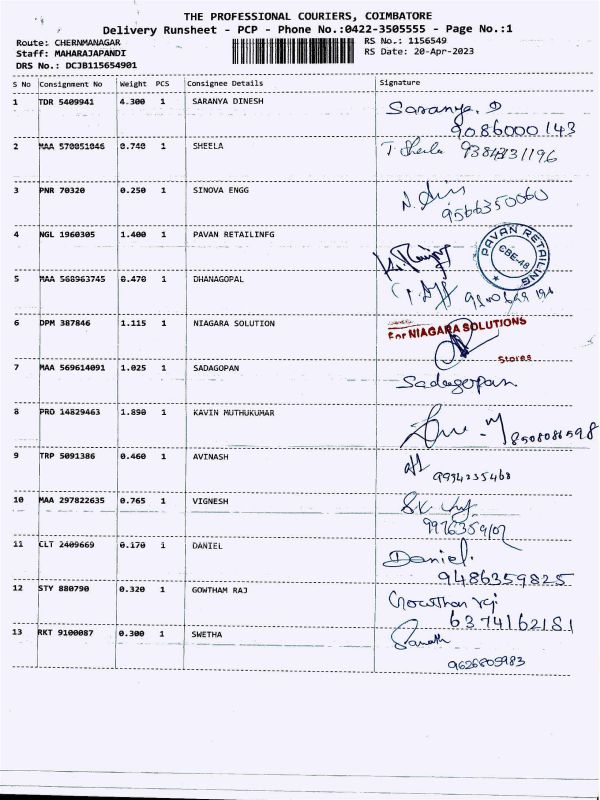 THE PROFESSIONAL COURIERS, COIMBATORE
Delivery Runsheet - PCP - Phone No.:0422-3505555 - Page No.:1
Route: CHERNMANAGAR
RS No.: 1156549
Staff: MAHARAJAPANDI
RS Date: 20-Apr-2023
DRS No.: DCJB115654901
S No Consignment No Weight PCS Consignee Details Signature
1 TDR 5409941 4.300 1 SARANYA DINESH Saranya. D
9086000143
2 MAA 570851046 0.740 1 SHEELA T. Sheela
3 PNR 70320 0.250 1 SINOVA ENGG
9566350060
4 NGL 1960305 1.400 1 PAVAN RETAILINFG
PAVAN RETAILING
CBE-48
5 MAA 568963745 0.470 1 DHANAGOPAL
6 DPM 387846 1.115 1 NIAGARA SOLUTION
For NIAGARA SOLUTIONS
Stores
7 MAA 569614091 1.025 1 SADAGOPAN
Sadagopan
8 PRO 14829463 1.890 1 KAVIN MUTHUKUMAR
8508086598
9 TRP 5091386 0.460 1 AVINASH
9994235468
10 MAA 297822635 0.765 1 VIGNESH
11 CLT 2409669 0.170 1 DANIEL
Daniel.
9486359825
12 STY 880790 0.320 1 GOWTHAM RAJ
Gowtham raj
6374162181
13 RKT 9100087 0.300 1 SWETHA
9626805983